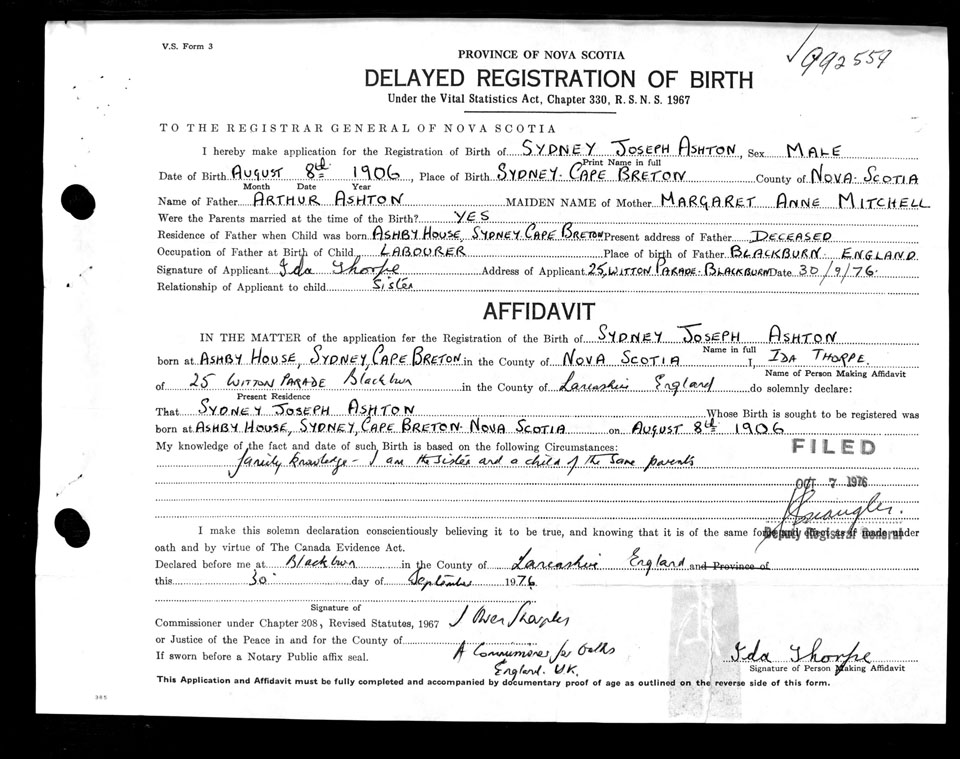 V.S. Form 3
992559
PROVINCE OF NOVA SCOTIA
DELAYED REGISTRATION OF BIRTH
Under the Vital Statistics Act, Chapter 330, R.S.N.S. 1967
TO THE REGISTRAR GENERAL OF NOVA SCOTIA
I hereby make application for the Registration of Birth of SYDNEY JOSEPH ASHTON, Sex MALE
Print Name in full
Date of Birth AUGUST 8th 1906, Place of Birth SYDNEY CAPE BRETON County of NOVA SCOTIA
Month Date Year
Name of Father ARTHUR ASHTON MAIDEN NAME of Mother MARGARET ANNE MITCHELL
Were the Parents married at the time of the Birth? YES
Residence of Father when Child was born ASHBY HOUSE, SYDNEY CAPE BRETON Present address of Father DECEASED
Occupation of Father at Birth of Child LABOURER Place of birth of Father BLACKBURN ENGLAND
Signature of Applicant Ida Thorpe Address of Applicant 25, WITTON PARADE BLACKBURN Date 30/9/76
Relationship of Applicant to child Sister
AFFIDAVIT
IN THE MATTER of the application for the Registration of the Birth of SYDNEY JOSEPH ASHTON
Name in full
born at ASHBY HOUSE, SYDNEY, CAPE BRETON in the County of NOVA SCOTIA I, IDA THORPE.
Name of Person Making Affidavit
of 25 WITTON PARADE Blackburn in the County of Lancashire England do solemnly declare:
Present Residence
That SYDNEY JOSEPH ASHTON Whose Birth is sought to be registered was
born at ASHBY HOUSE, SYDNEY, CAPE BRETON NOVA SCOTIA on AUGUST 8th 1906
My knowledge of the fact and date of such Birth is based on the following Circumstances:
FILED
family knowledge - I am the sister and a child of the same parents
OCT 7 1976
Deputy Registrar General
I make this solemn declaration conscientiously believing it to be true, and knowing that it is of the same force and effect as if made under
oath and by virtue of The Canada Evidence Act.
Declared before me at Blackburn in the County of Lancashire England and Province of
this 30 day of September 1976
Signature of
Commissioner under Chapter 208, Revised Statutes, 1967
or Justice of the Peace in and for the County of
If sworn before a Notary Public affix seal.
A Commissioner for Oaths
England. U.K.
Ida Thorpe
Signature of Person Making Affidavit
This Application and Affidavit must be fully completed and accompanied by documentary proof of age as outlined on the reverse side of this form.
385